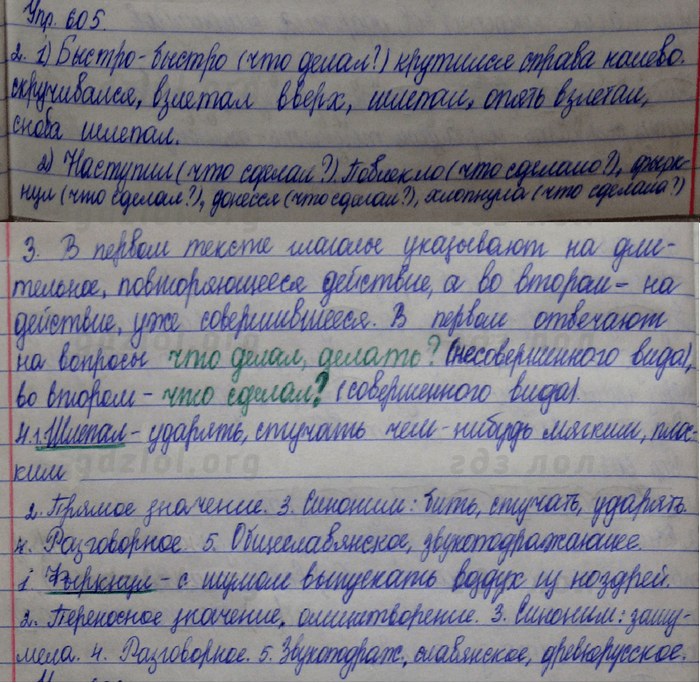 Упр. 605.
2. 1) Быстро-быстро (что делал?) крутился справа налево.
скручивался, взлетал вверх, шлепал, опять взлетал,
снова шлепал.
2) Наступил (что сделал?) Повлекло (что сделало?), фырк-
нул (что сделал?), донёсся (что сделал?), хлопнула (что сделала?)
3. В первом тексте глаголы указывают на дли-
тельное, повторяющееся действие, а во втором - на
действие, уже совершившееся. В первом отвечают
на вопросы что делал, делать? (несовершенного вида),
во втором - что сделал? (совершенного вида).
4.1. Шлепал - ударять, стучать чем-нибудь мягким, плос-
ким
gdzlol.org гдз лол
2. Прямое значение. 3. Синоним: бить, стучать, ударять.
4. Разговорное. 5. Общеславянское, звукоподражающее.
1. Фыркнул - с шумом выпускать воздух из ноздрей.
2. Переносное значение, олицетворение. 3. Синоним: зашу-
мела. 4. Разговорное. 5. Звукоподраж., славянское, древнорусское.